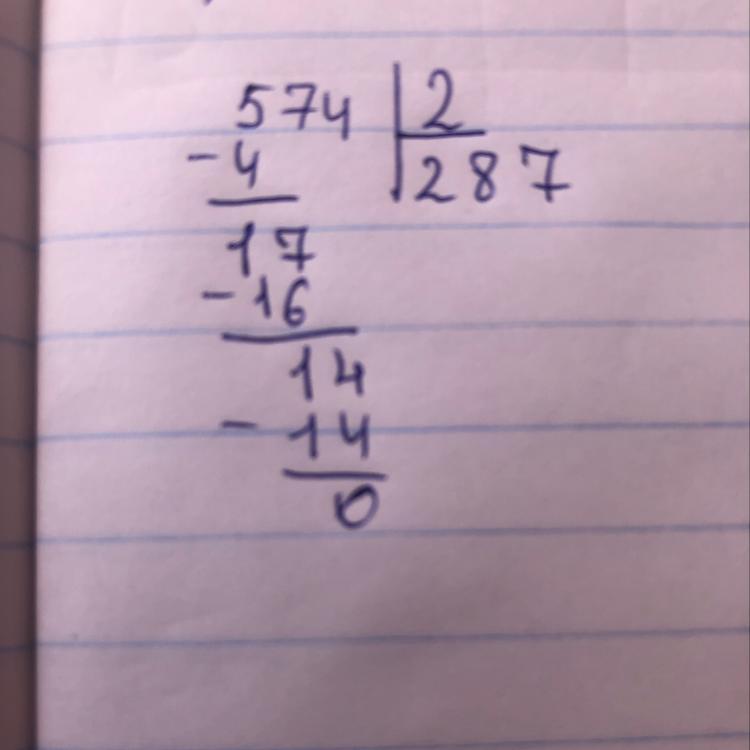 574 2
-4 287
17
-16
14
-14
0